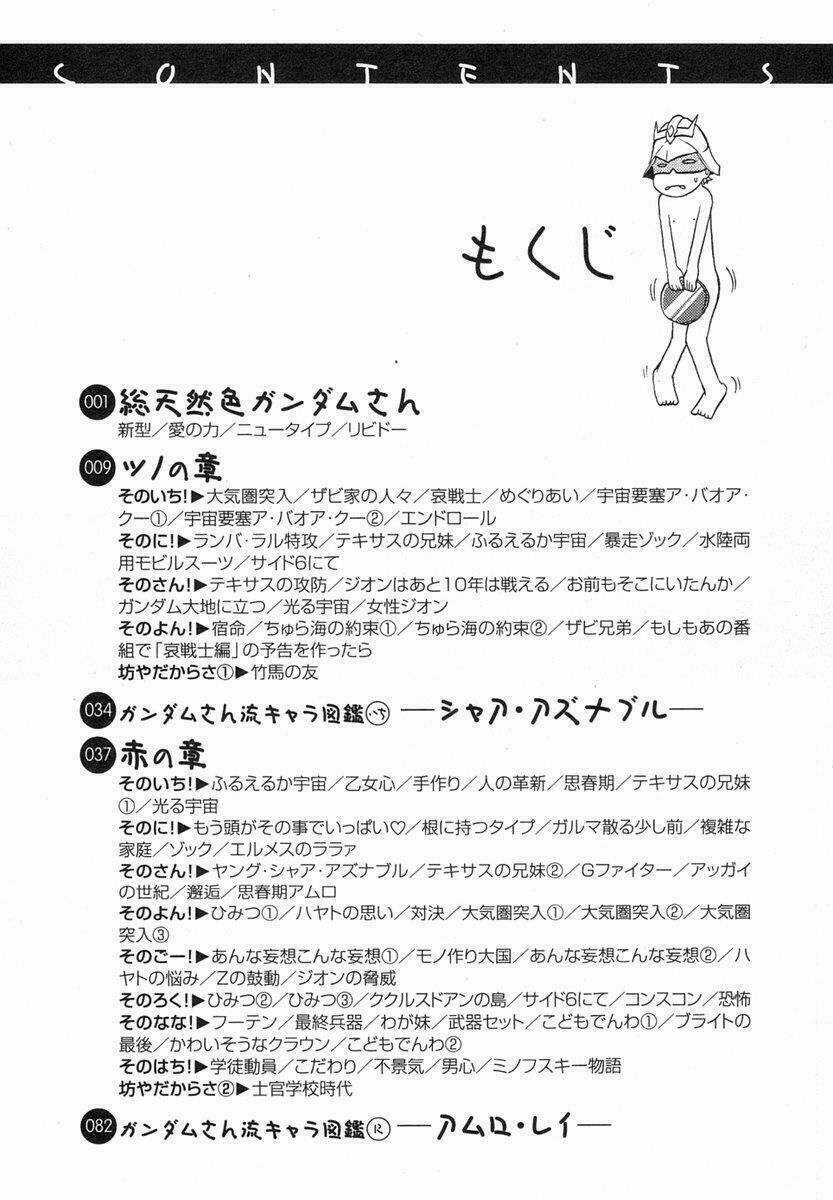 CONTENTS
もくじ
001 総天然色ガンダムさん
新型／愛の力／ニュータイプ／リビドー
009 ツノの章
そのいち!▶大気圏突入／ザビ家の人々／哀戦士／めぐりあい／宇宙要塞ア・バオア・
クー①／宇宙要塞ア・バオア・クー②／エンドロール
そのに!▶ランバ・ラル特攻／テキサスの兄妹／ふるえるか宇宙／暴走ゾック／水陸両
用モビルスーツ／サイド6にて
そのさん!▶テキサスの攻防／ジオンはあと10年は戦える／お前もそこにいたんか／
ガンダム大地に立つ／光る宇宙／女性ジオン
そのよん!▶宿命／ちゅら海の約束①／ちゅら海の約束②／ザビ兄弟／もしもあの番
組で「哀戦士編」の予告を作ったら
坊やだからさ①▶竹馬の友
034 ガンダムさん流キャラ図鑑㋑ち ──シャア・アズナブル──
037 赤の章
そのいち!▶ふるえるか宇宙／乙女心／手作り／人の革新／思春期／テキサスの兄妹
①／光る宇宙
そのに!▶もう頭がその事でいっぱい♡／根に持つタイプ／ガルマ散る少し前／複雑な
家庭／ゾック／エルメスのララァ
そのさん!▶ヤング・シャア・アズナブル／テキサスの兄妹②／Gファイター／アッガイ
の世紀／邂逅／思春期アムロ
そのよん!▶ひみつ①／ハヤトの思い／対決／大気圏突入①／大気圏突入②／大気圏
突入③
そのごー!▶あんな妄想こんな妄想①／モノ作り大国／あんな妄想こんな妄想②／ハ
ヤトの悩み／Zの鼓動／ジオンの脅威
そのろく!▶ひみつ②／ひみつ③／ククルスドアンの島／サイド6にて／コンスコン／恐怖
そのなな!▶フーテン／最終兵器／わが妹／武器セット／こどもでんわ①／ブライトの
最後／かわいそうなクラウン／こどもでんわ②
そのはち!▶学徒動員／こだわり／不景気／男心／ミノフスキー物語
坊やだからさ②▶士官学校時代
082 ガンダムさん流キャラ図鑑に ──アムロ・レイ──